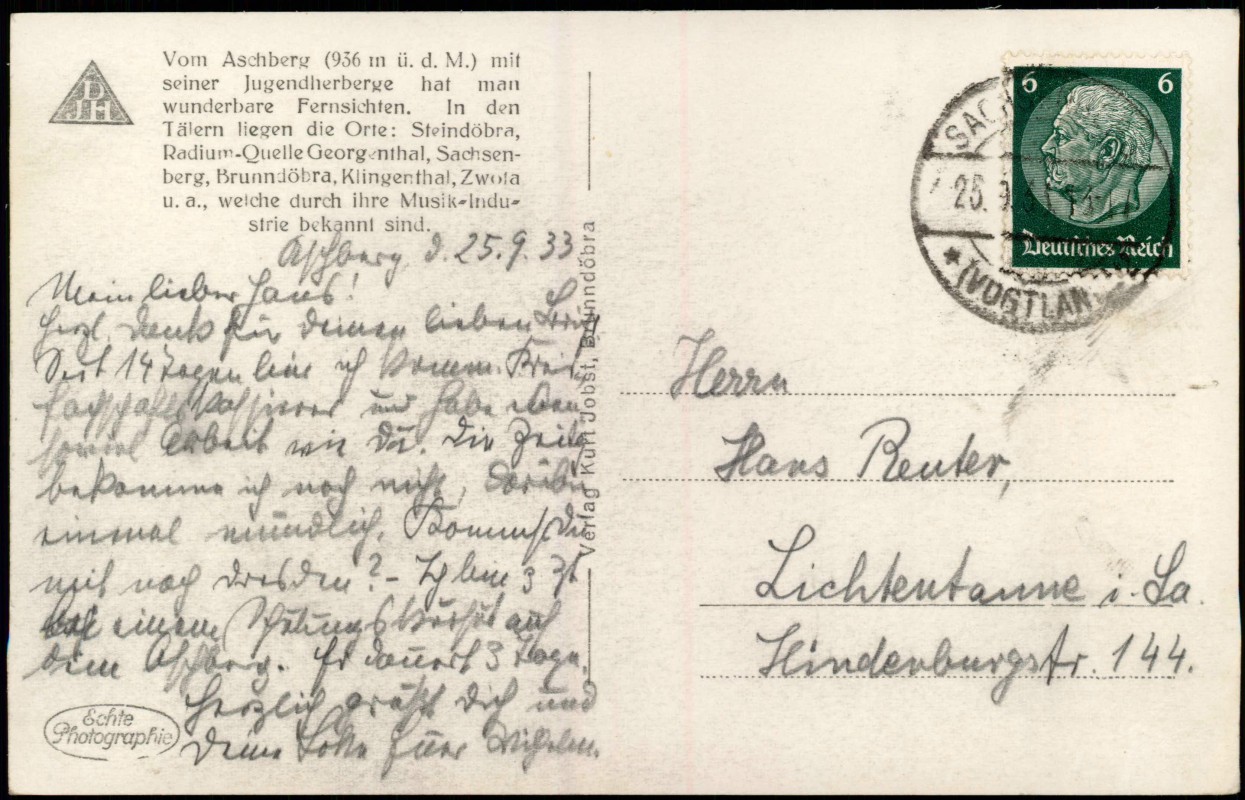 DJH
Vom Aschberg (936 m ü. d. M.) mit
seiner Jugendherberge hat man
wunderbare Fernsichten. In den
Tälern liegen die Orte: Steindöbra,
Radium-Quelle Georgenthal, Sachsen-
berg, Brunndöbra, Klingenthal, Zwota
u. a., welche durch ihre Musik-Indu-
strie bekannt sind.
Aschberg, d. 25.9.33.
Mein lieber Hans!
Herzl. Dank für deinen lieben
Seit 14 Tagen bin ich komm. Kreis-
und habe eben
soviel Arbeit wie du. Die
bekomme ich noch nicht, darüber
einmal mündlich. Kommst Du
mit nach Dresden? – Ich bin z. Zt.
auf einem Schulungskursus auf
dem Aschberg. Er dauert 3 Tage.
Herzlich grüßt Dich und
Deine Euer
Echte
Photographie
Verlag Kurt Jobst, Brunndöbra
6 6
Deutsches Reich
SAC
25. 9. 3
* (VOGTLAN
Herrn
Hans Reuter,
Lichtentanne i. Sa.
Hindenburgstr. 144.